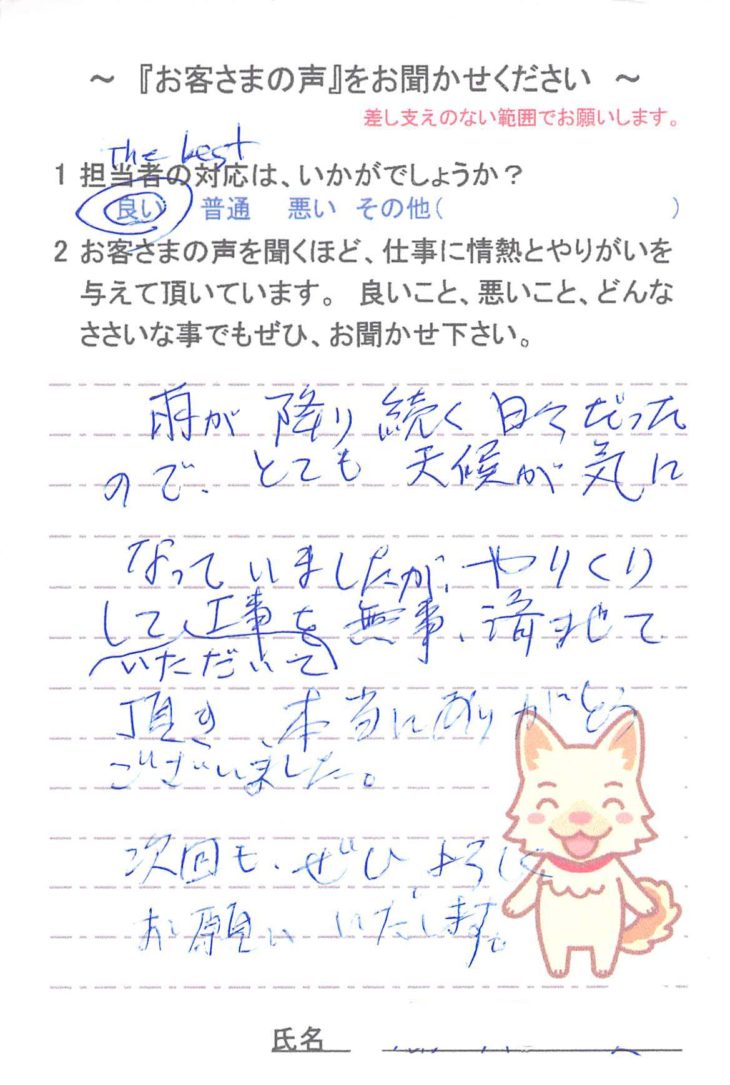 ～ 『お客さまの声』をお聞かせください ～
差し支えのない範囲でお願いします。
The best
1 担当者の対応は、いかがでしょうか？
良い 普通 悪い その他( )
2 お客さまの声を聞くほど、仕事に情熱とやりがいを
与えて頂いています。 良いこと、悪いこと、どんな
ささいな事でもぜひ、お聞かせ下さい。
雨が降り続く日々だった
ので、とても天候が気に
なっていましたが、やりくり
して、工事を無事、済ませて
いただいて
頂き、本当にありがとう
ございました。
次回も、ぜひ、よろしく
お願いいたします。
氏名